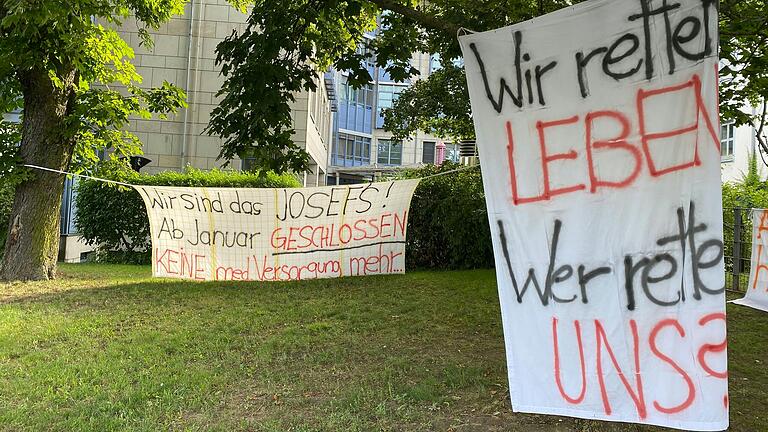 Wir sind das JOSEFS!
Ab Januar GESCHLOSSEN
KEINE med Versorgung mehr..
Wir retten
LEBEN
Wer rettet
UNS?